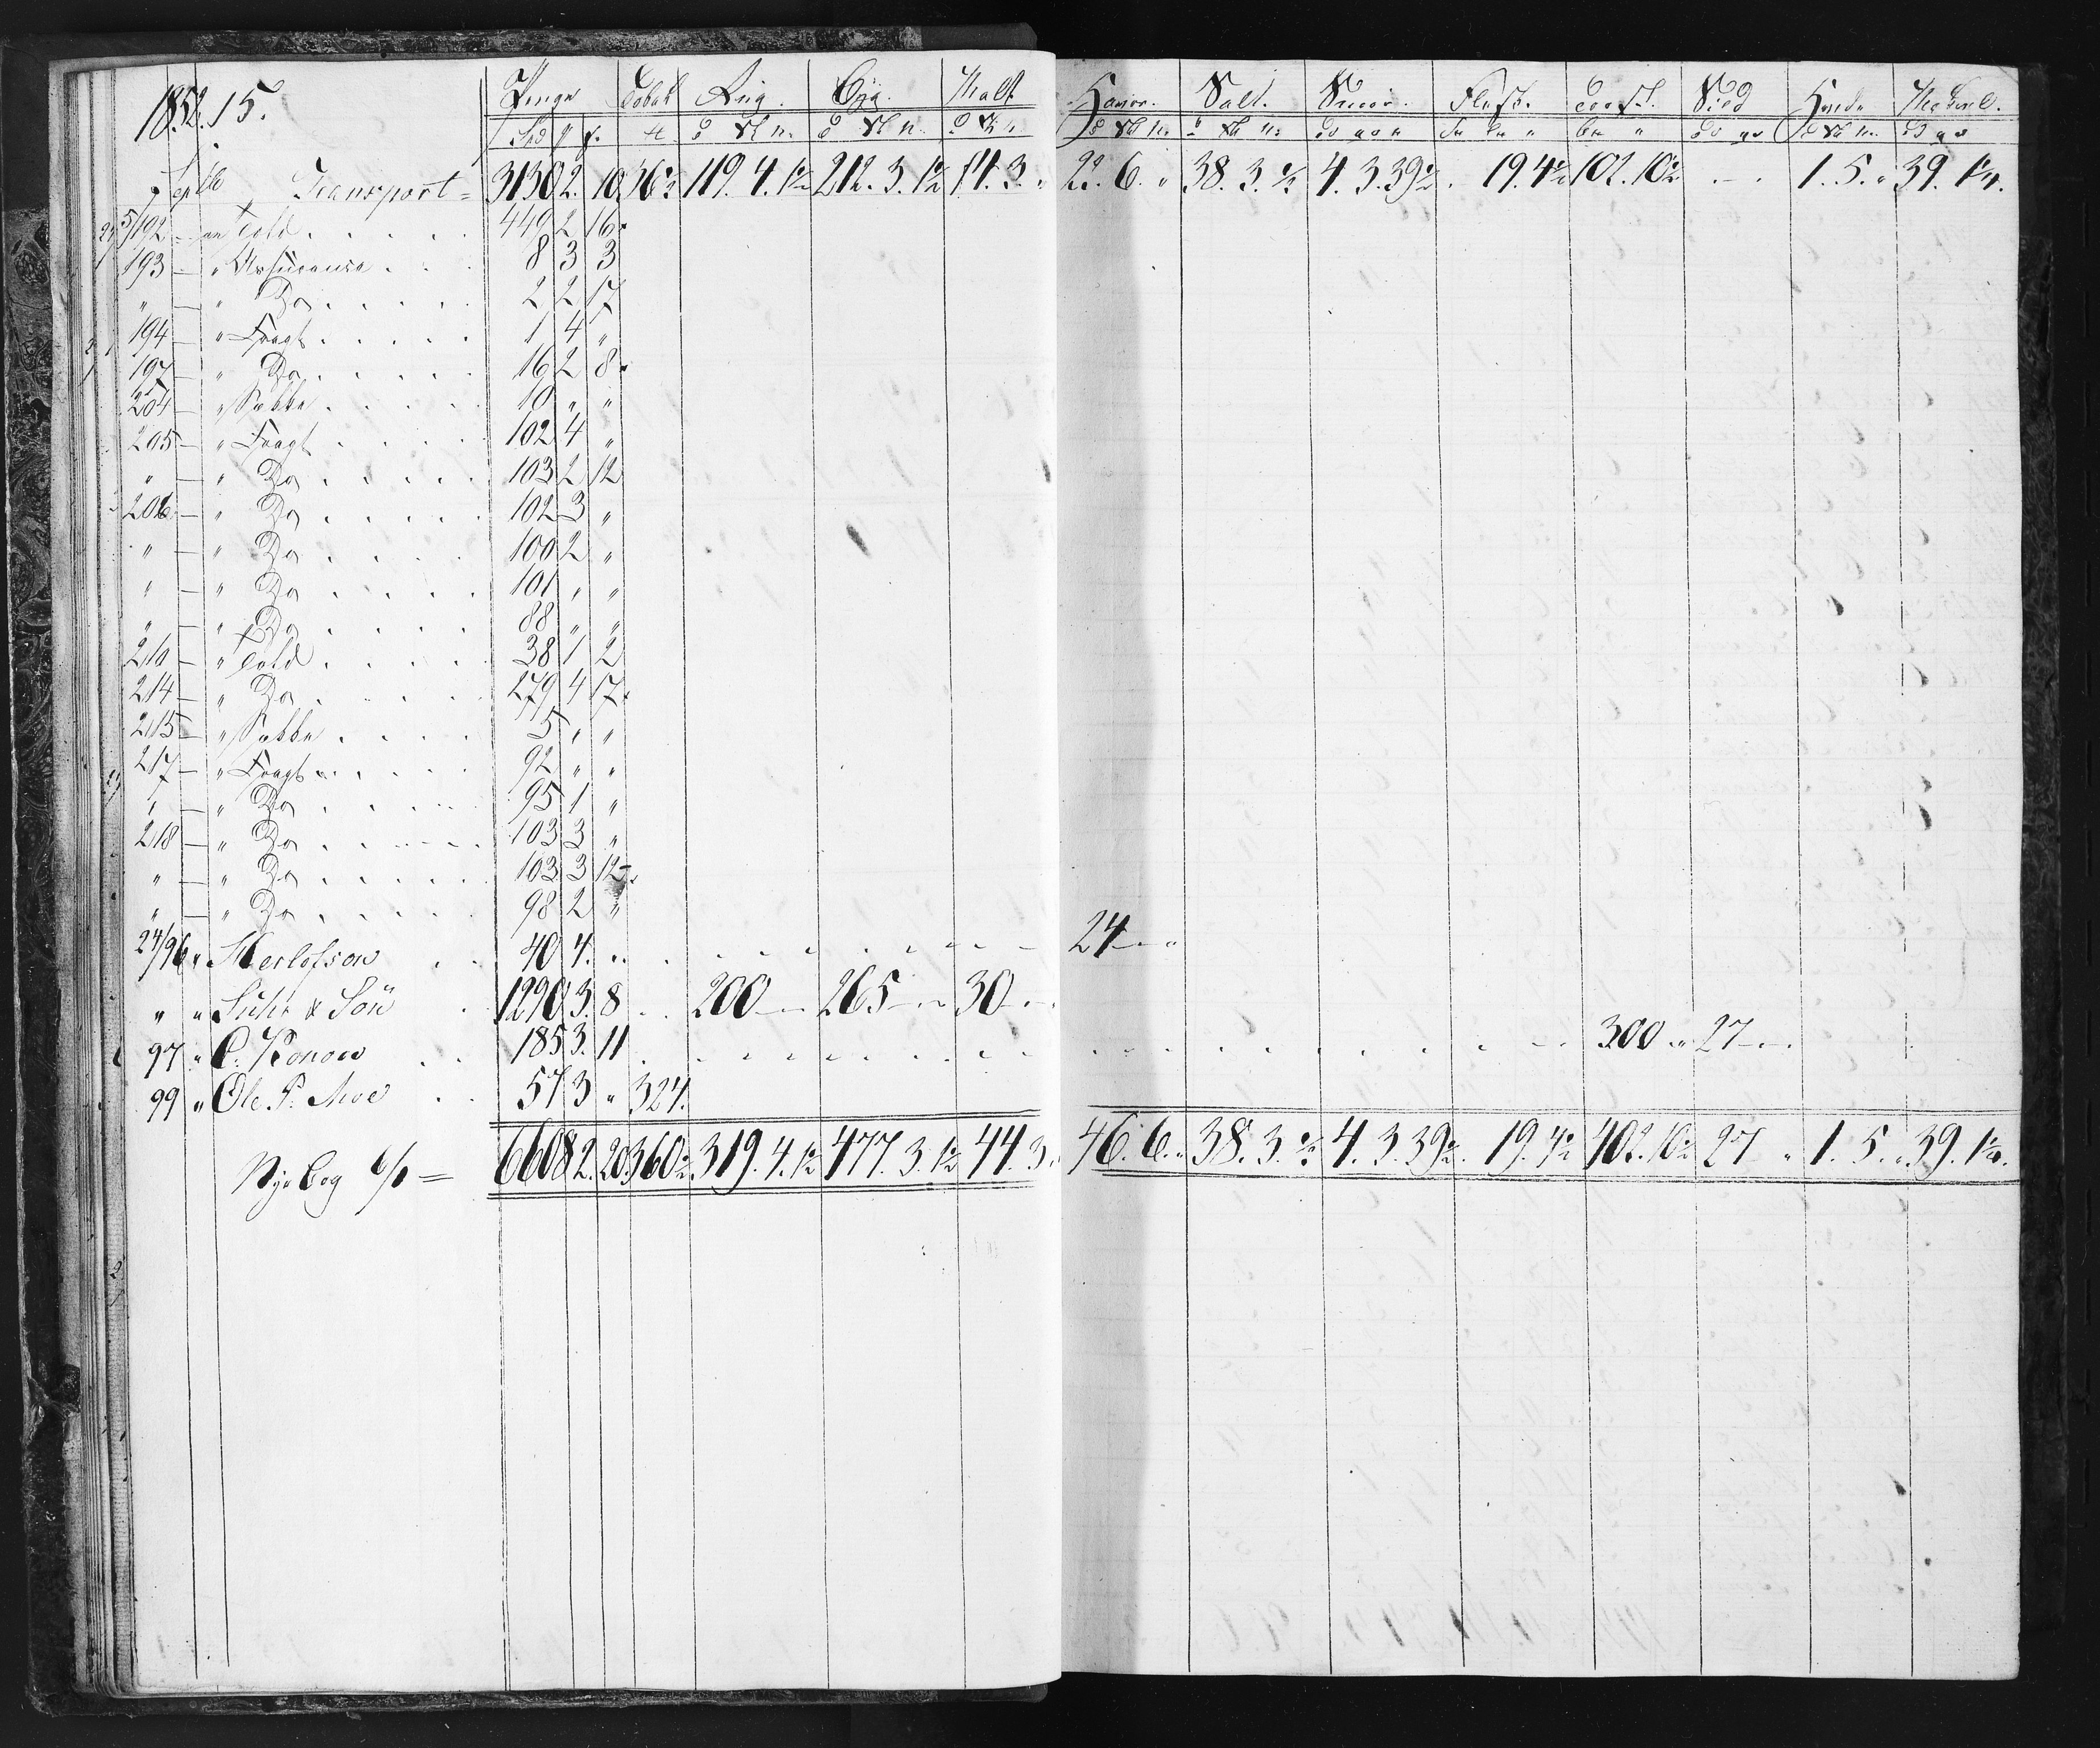 1852. 15. Penge Tobak Rug. Byg. Malt Havre. Salt. Smør. Flesk. Tørf. Sild Hvede
Septb Transport = 3130 2. 10 36 119. 4. 1½ 212. 3. 1½ 14. 3. " 22. 6. " 38. 3. 4. 3. 39½ . 19. 4½ 102. 10½ 1. 5. " 39. 1¼.
5/192 — an Told 449 2 16
193 — " Assurance 8 3 3
" — " Do 2 2 17
194 — " Fragt 1 4 "
197 — " Do 16 2 8
204 — " Sække 10 " "
205 — " Fragt 102 4 "
" — " Do 103 2 12
206 — " Do 102 3 "
" — " Do 100 2 "
" — " Do 101 " "
" — " Do 88 " "
210 — " Told 38 1 2
214 — " Do 279 4 17
215 — " Sække 5 " "
217 — " Fragt 92 " "
" — " Do 95 1 "
218 — " Do 103 3 "
" — " Do 103 3 12
" — " Do 98 2 "
24/96 " Herlofson 40 4. " 24 "
" " Suhr & Søn 1290 3. 8 200 265 30
97 " C. Konow 185 3. 11 300 " 27
99 " Ole P. Moe 57 3 " 324.
Nye Bog 6608 2. 20 360½ 319. 4. 1½ 477. 3. 1½ 44. 3. 46. 6. " 38. 3. 4. 3. 39½. 19. 4½ 402. 10½ 27 " 1. 5. " 39. 1¼.